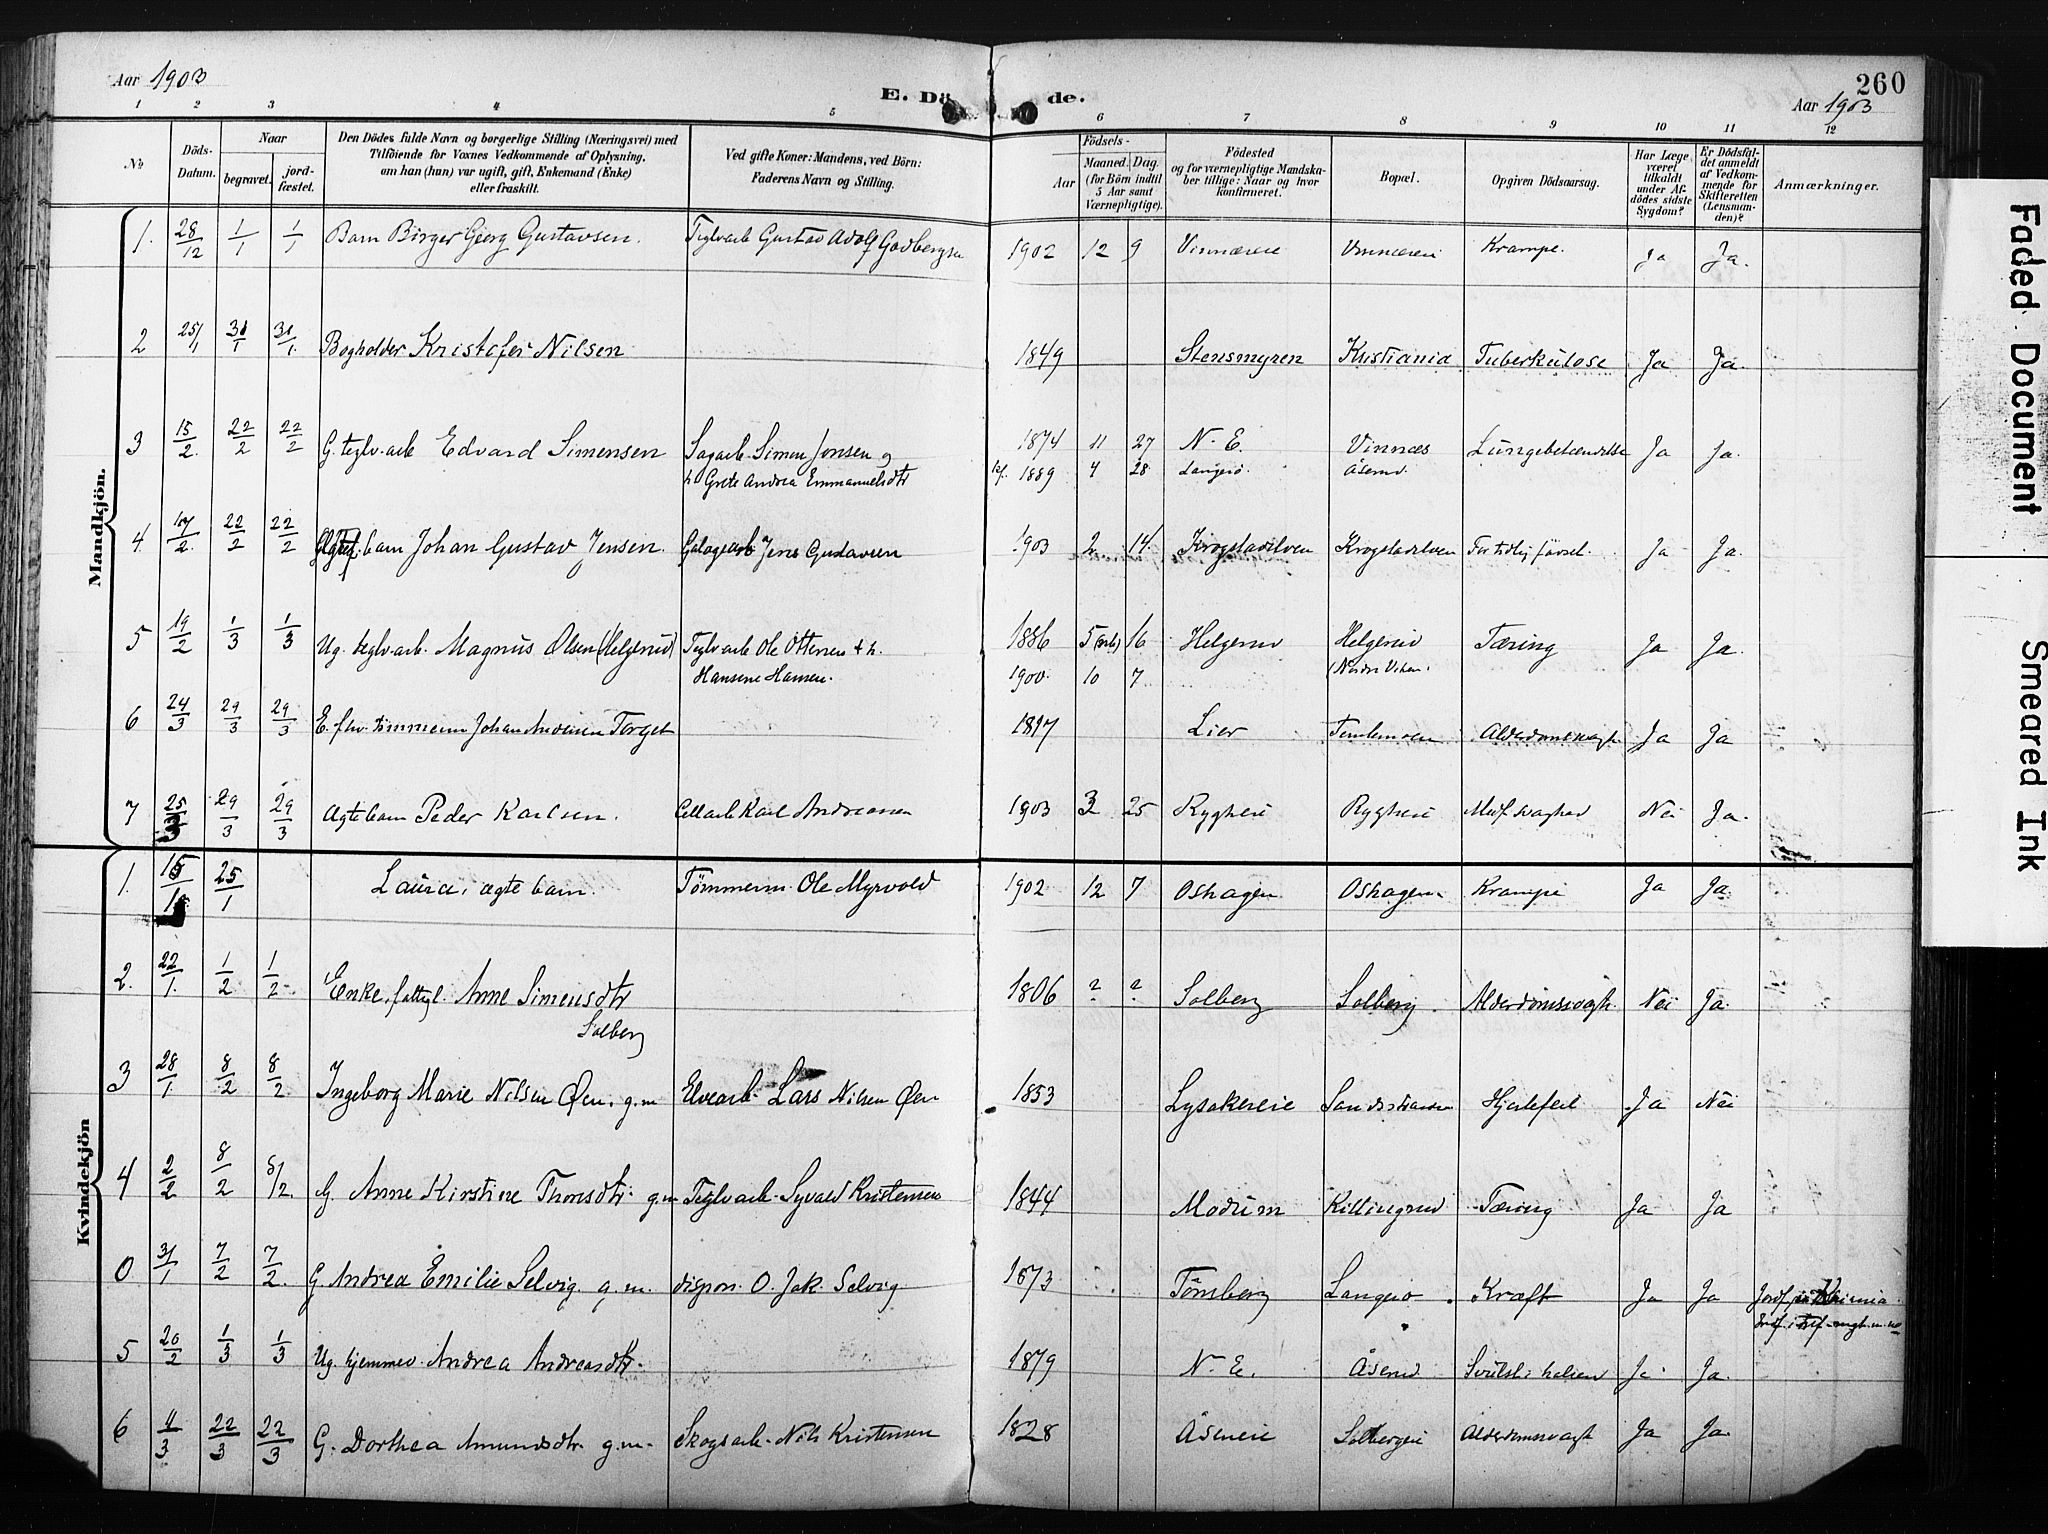 Aar 1903
E. Dö
de.
260
Aar 1903
1 2 3 4 5 6 7 8 9 10 11 12
No
Döds-Datum.
Naar
begravet.
jordfæstet.
Den Dödes fulde Navn og borgerlige Stilling (Næringsvei) med
Tilföiende for Voxnes Vedkommende af Oplysning,
om han (hun) var ugift, gift, Enkemand (Enke)
eller fraskilt.
Ved gifte Koner: Mandens, ved Börn:
Faderens Navn og Stilling.
Födsels-
Aar
Maaned. Dag.
(for Börn indtil
5 Aar samt
Værnepligtige).
Födested
og for værnepligtige Mandskaber tillige: Naar og hvor
konfirmeret.
Bopæl.
Opgiven Dödsaarsag.
Har Læge
været
tilkaldt
under Afdödes sidste
Sygdom?
Er Dödsfaldet anmeldt
af Vedkommende for
Skifteretten
(Lensmanden)?
Anmærkninger.
Mandkjön.
1. 28/12 1/1 1/1 Barn Birger Georg Gustavsen. Teglvarb Gustav Adolf 1902 12 9 Vinnæreie Vinnæreie Krampe. Ja Ja.
2 25/1 31/1 31/1. Bogholder Kristofer Nilsen 1849 Stensmyren Kristiania Tuberkulose Ja Ja.
3 15/2 22/2 22/2 G. teglv.arb Edvard Simensen Sagarb. Simen Jonsen og 1874 11 27 N. E. Vinnæs Lungebetændelse Ja Ja.
h Grete Andrea Emmanuelsdtr kf. 1889 4 28 Langerö. Åserud.
4. 17/2 22/2 22/2 barn Johan Gustav Jensen. Jens Gustavsen 1903 2 14. Krogstadelven Krogstadelven For tidlig födsel. Ja Ja.
5 19/2 1/3 1/3 Ug. teglv.arb. Magnus Olsen (Helgerud) Teglvarb Ole Ottersen + h. 1886 5 16 Helgerud Helgerud Tæring Ja Ja.
Hansene Hansen. 1900. 10 7 (Nedre Viken)
6 24/3 29/3 29/3 E. fhv. tömmerm Johan Andersen Torget 1817 Lier Alderdomssvagh Ja Ja
7 25/3 29/3 29/3 Ægte barn Peder Karlsen. Cellarb Karl Andreasen 1903 3 25 Rygheie Rygheie Medf. svaghed Nei Ja.
Kvindekjön
1. 15/1 25/1 Laura, ægte barn. Tömmerm. Ole Myrvold 1902 12 7 Oshagen Oshagen Krampe Ja Ja.
2. 22/1. 1/2 1/2 Enke, fattigl. Anne Simensdtr 1806 ? ? Solberg Solberg. Alderdomssvagh. Nei Ja.
Solberg
3 28/1 8/2 8/2. Ingeborg Marie Nilsen Øen. g.m Elvearb. Lars Nilsen Øen 1853 Lysakereie Hjertefeil Ja Nei
4 2/2 8/2 8/2. G. Anne Kirstine Thorsdtr. g.m Teglvarb. Syvald Kristensen 1844 Modum Killingrud Tæring Ja Ja
0 31/1 7/2 7/2. G. Andrea Emilie Selvig. g.m. dispon. O. Jak. Selvig 1873 Tönsberg Langerö. Kræft Ja Ja
5 20/2 1/3 1/3 Ug. hjemmev. Andrea Andreasdtr. 1879 N. E. Åserud Svulst i halsen Ja Ja.
6 4/3 22/3 22/3 G. Dorthea Amundsdtr. g.m. Skogsarb. Nils Kristensen 1828 Åsereie Solbergeie Alderdomssvagh Ja Ja.
Faded Document
Smeared Ink